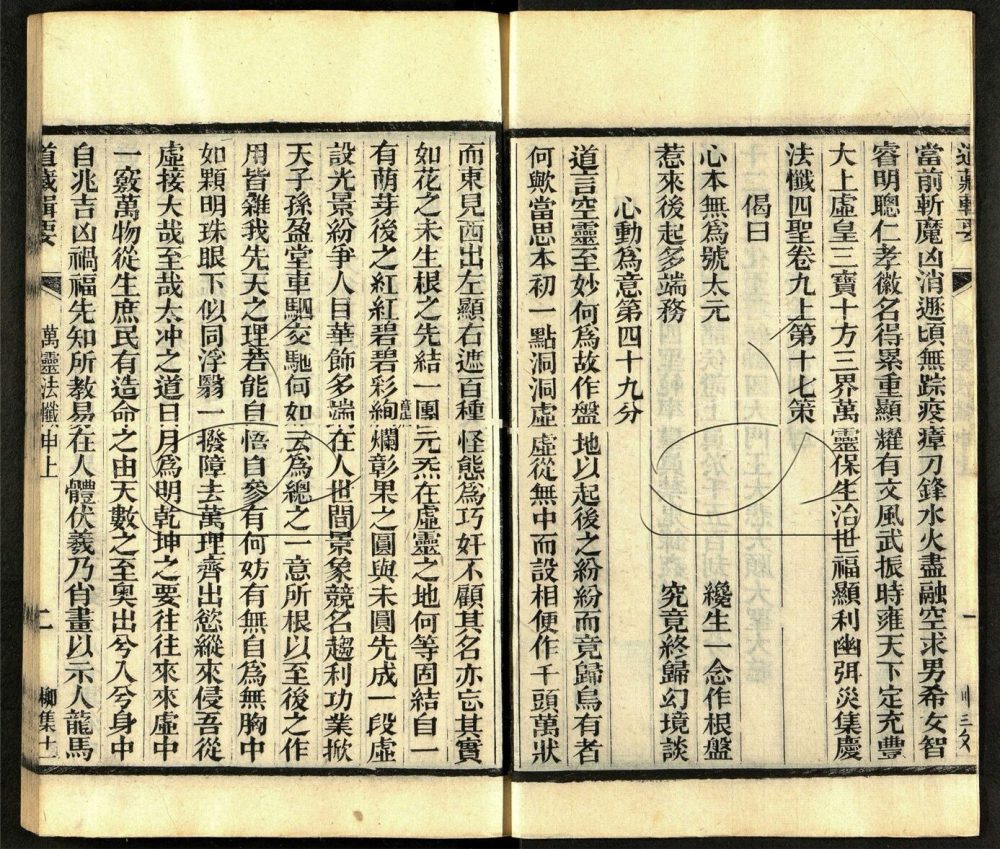 道藏輯要
當前斬魔凶消遜頃無踪疫瘴刀鋒水火盡融空求男希女智
睿明聰仁孝徽名得累重顯耀有文風武振時雍天下定充豐
大上虛皇三寶十方三界萬靈保生治世福顯利幽弭災集慶
法懺四聖卷九上第十七策
偈曰
心本無為號太元 纔生一念作根盤
惹來後起多端務 究竟終歸幻境談
心動為意第四十九分
道言空靈至妙何為故作盤地以起後之紛紛而竟歸烏有者
何歟當思本初一點洞洞虛虛從無中而設相便作千頭萬狀
而東見西出左顯右遮百種怪態為巧奸不顧其名亦忘其實
如花之未生根之先結一團元炁在虛靈之地何等固結自一
有萌芽後之紅紅碧碧彩絢爛彰果之圓與未圓先成一段虛
設光景紛爭人目華飾多端在人世間景象競名趨利功業掀
天子孫盈堂車駟交馳何如云為總之一意所根以至後之作
用皆雜我先天之理若能自悟自參有何妨有無自為無胸中
如顆明珠眼下似同浮翳一撥障去萬理齊出慾縱來侵吾從
虛接大哉至哉太冲之道日月為明乾坤之要往往來來虛中
一竅萬物從生庶民有造命之由天數之至奧出兮入兮身中
自兆吉凶禍福先知所教易在人體伏羲乃肖畫以示人龍馬
道藏輯要 萬靈法懺申上 二 柳集十一